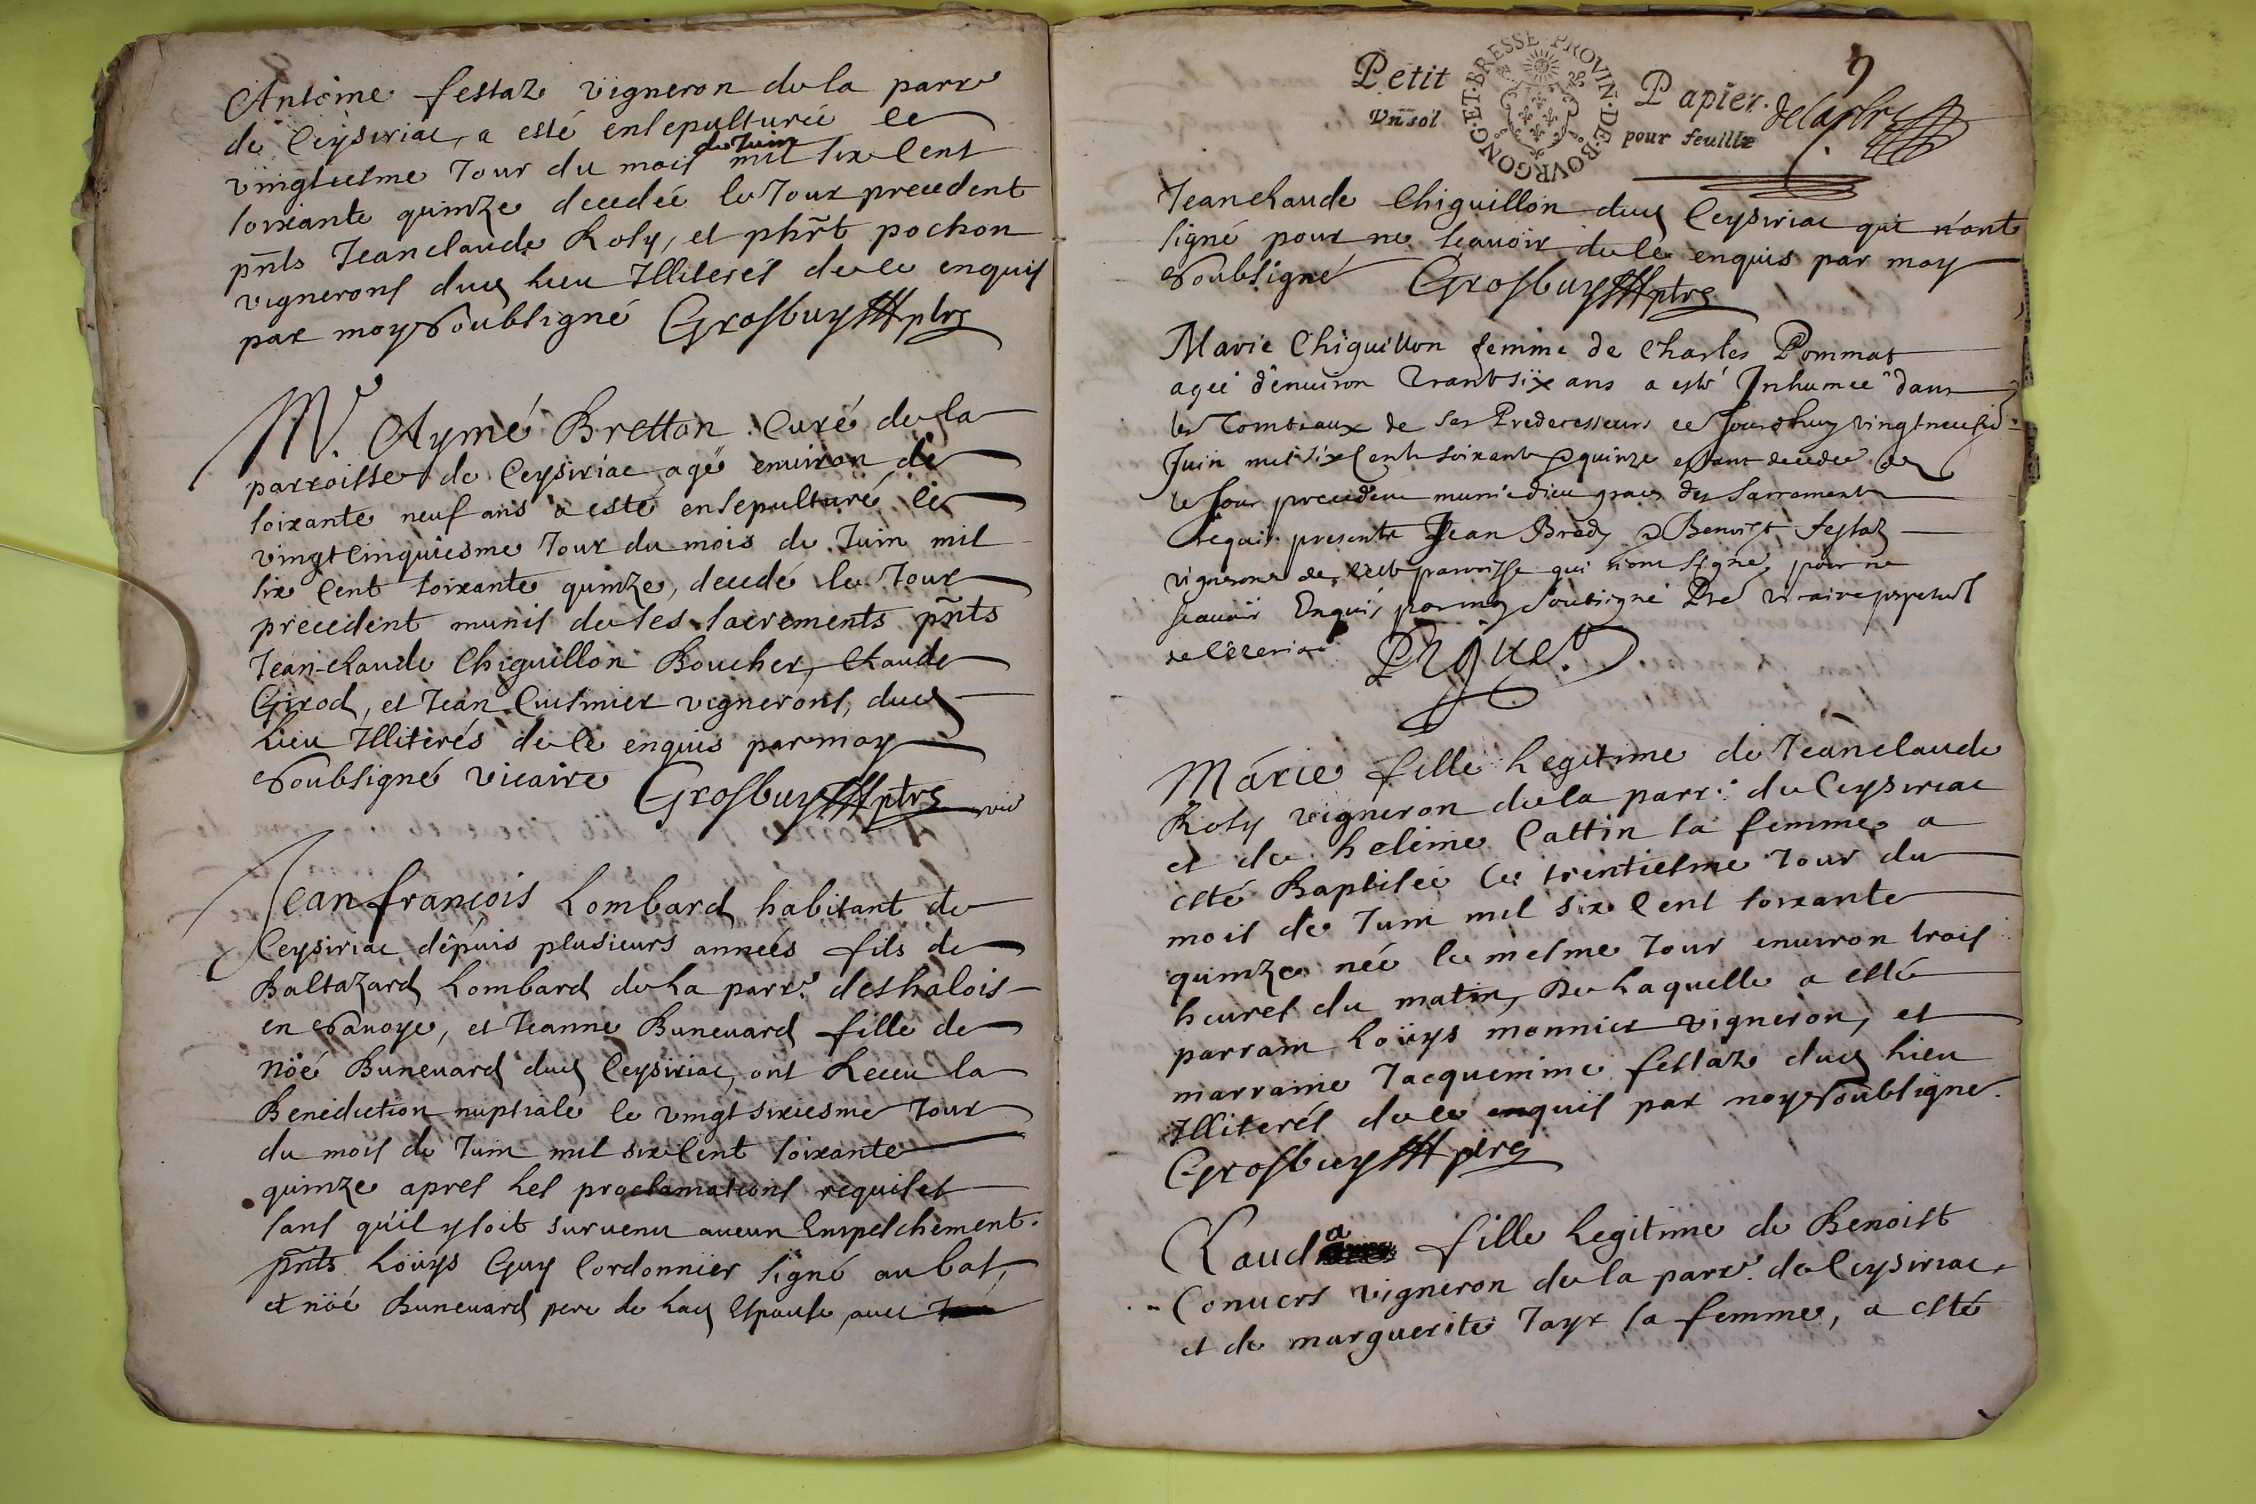 Antoine festaz vigneron de la parr
de Ceysiriac, a esté ensepulturée le
vingtiesme Jour du mois de Juin mil six Cent
soixante quinze decedée le Jour precedent
pnts Jeanclaude Roly, et phrt pochon
vignerons dud lieu Illiterés de ce enquis
par moy soubsigné Grosbuy ptre
Mre Aymé Bretton Curé de la
parroisse de Ceysiriac agé environ de
soixante neuf ans a esté ensepulturé le
vingtcinquiesme Jour du mois de Juin mil
six Cent soixante quinze, decedé le Jour
precedent munis de ses sacrements pnts
Jean-claude Chiguillon Boucher, Claude
Girod, et Jean Cuisinier vignerons, dud
lieu Illiterés de ce enquis par moy
soubsigné vicaire Grosbuy ptre vic
Jean françois Lombard habitant de
Ceysiriac dépuis plusieurs années fils de
Baltazard Lombard de la parr. deshalois
en savoye, et Jeanne Buneuard fille de
nöé Buneuard dud Ceysiriac, ont Receu la
Benediction nuptiale le vingt sixiesme Jour
du mois de Juin mil six Cent soixante
quinze apres les proclamations requises
sans qu'il y soit survenu aucun Empeschement.
pnts Loüys Guy Cordonnier signé au bas,
et nöé Buneuard pere de lad Espouse, avec
9
Petit Papier. delastre
Vn sol pour feuille
PROVIN·DE·BOVRGONG·ET·BRESSE
Jeanclaude Chiguillon dud Ceysiriac qui n'ont
signé pour ne scauoir de ce enquis par moy
soubsigné Grosbuy ptre
Marie Chiguillon femme de Charles Pommat
agée d'enuiron trante six ans a esté Inhumée dans
les Tombeaux de ses Predecesseurs ce Jourdhuy vingtneufie
Juin mil six Cent soixante & quinze estant decedée
le Jour precedent munie dieu grace des Sacrements
requis presents Jean Bredy & Benoist festaz
vignerons de cette parroisse qui n'ont signé pour ne
scauoir Enquis par moy soubsigné Pre vicaire perpetuel
de Ceseriac
Marie fille Legitime de Jeanclaude
Roly vigneron de la parr. de Ceysiriac
et de heleine Cattin sa femme a
esté Baptisée le trentiesme Jour du
mois de Juin mil six Cent soixante
quinze née le mesme Jour enuiron trois
heures du matin, De Laquelle a esté
parrain Loüys monnier vigneron, et
marraine Jacquemine festaz dud Lieu
Illiterés de ce enquis par moy soubsigné.
Grosbuy ptre
Clauda fille Legitime de Benoist
Conuers vigneron de la parr. de Ceysiriac
et de marguerite Jayr sa femme, a esté